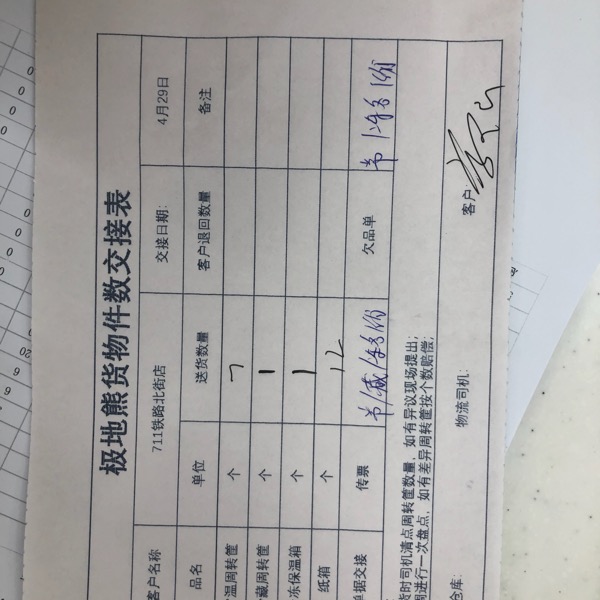 极地熊货物件数交接表
客户名称 711铁路北街店 交接日期: 4月29日
品名 单位 送货数量 客户退回数量 备注
温周转筐 个 7
藏周转筐 个 1
冻保温箱 个 1
纸箱 个 12
单据交接 传票 欠品单
货时司机清点周转筐数量,如有异议现场提出;
周进行一次盘点,如有差异周转筐按个数赔偿;
仓库: 物流司机: 客户: